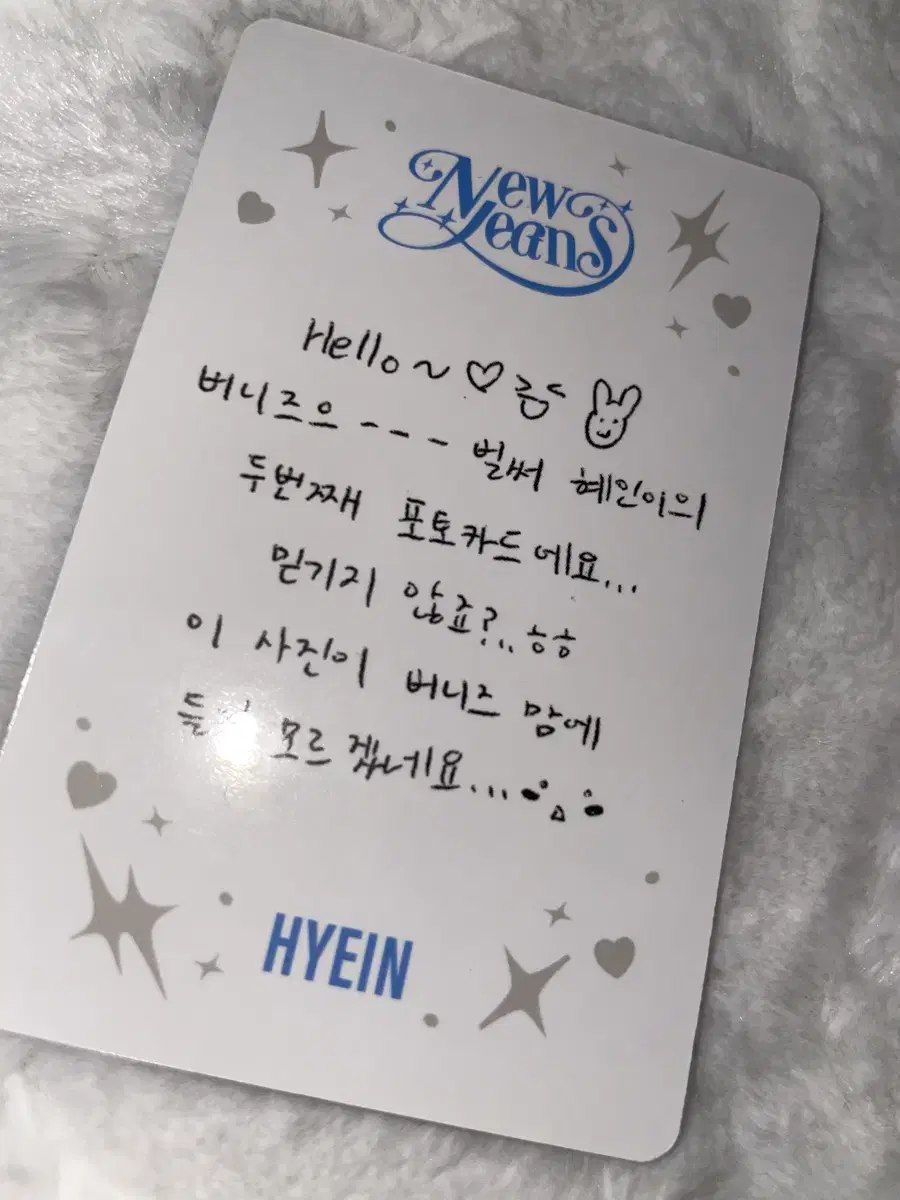 New Jeans
Hello~♡
버니즈으--- 벌써 혜인이의
두번째 포토카드에요...
믿기지 않죠?.. ㅎㅎ
이 사진이 버니즈 맘에
모르겠네요...
HYEIN